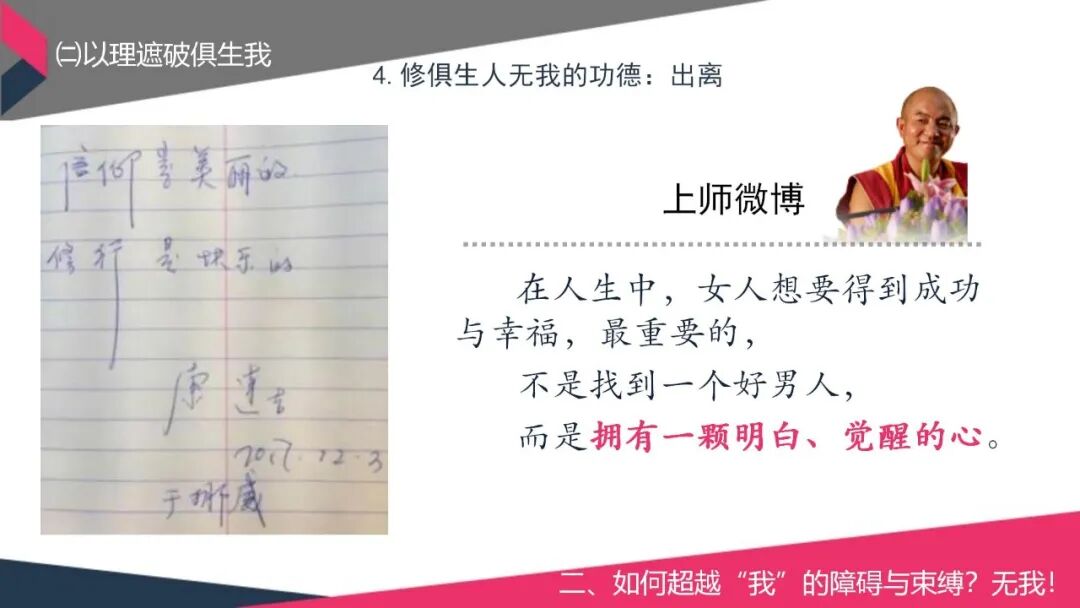 ㈡以理遮破俱生我
4. 修俱生人无我的功德：出离
信仰是美丽的
修行是快乐的
索达吉
2017.12.3
于挪威
上师微博
在人生中，女人想要得到成功
与幸福，最重要的，
不是找到一个好男人，
而是拥有一颗明白、觉醒的心。
二、如何超越“我”的障碍与束缚？无我！